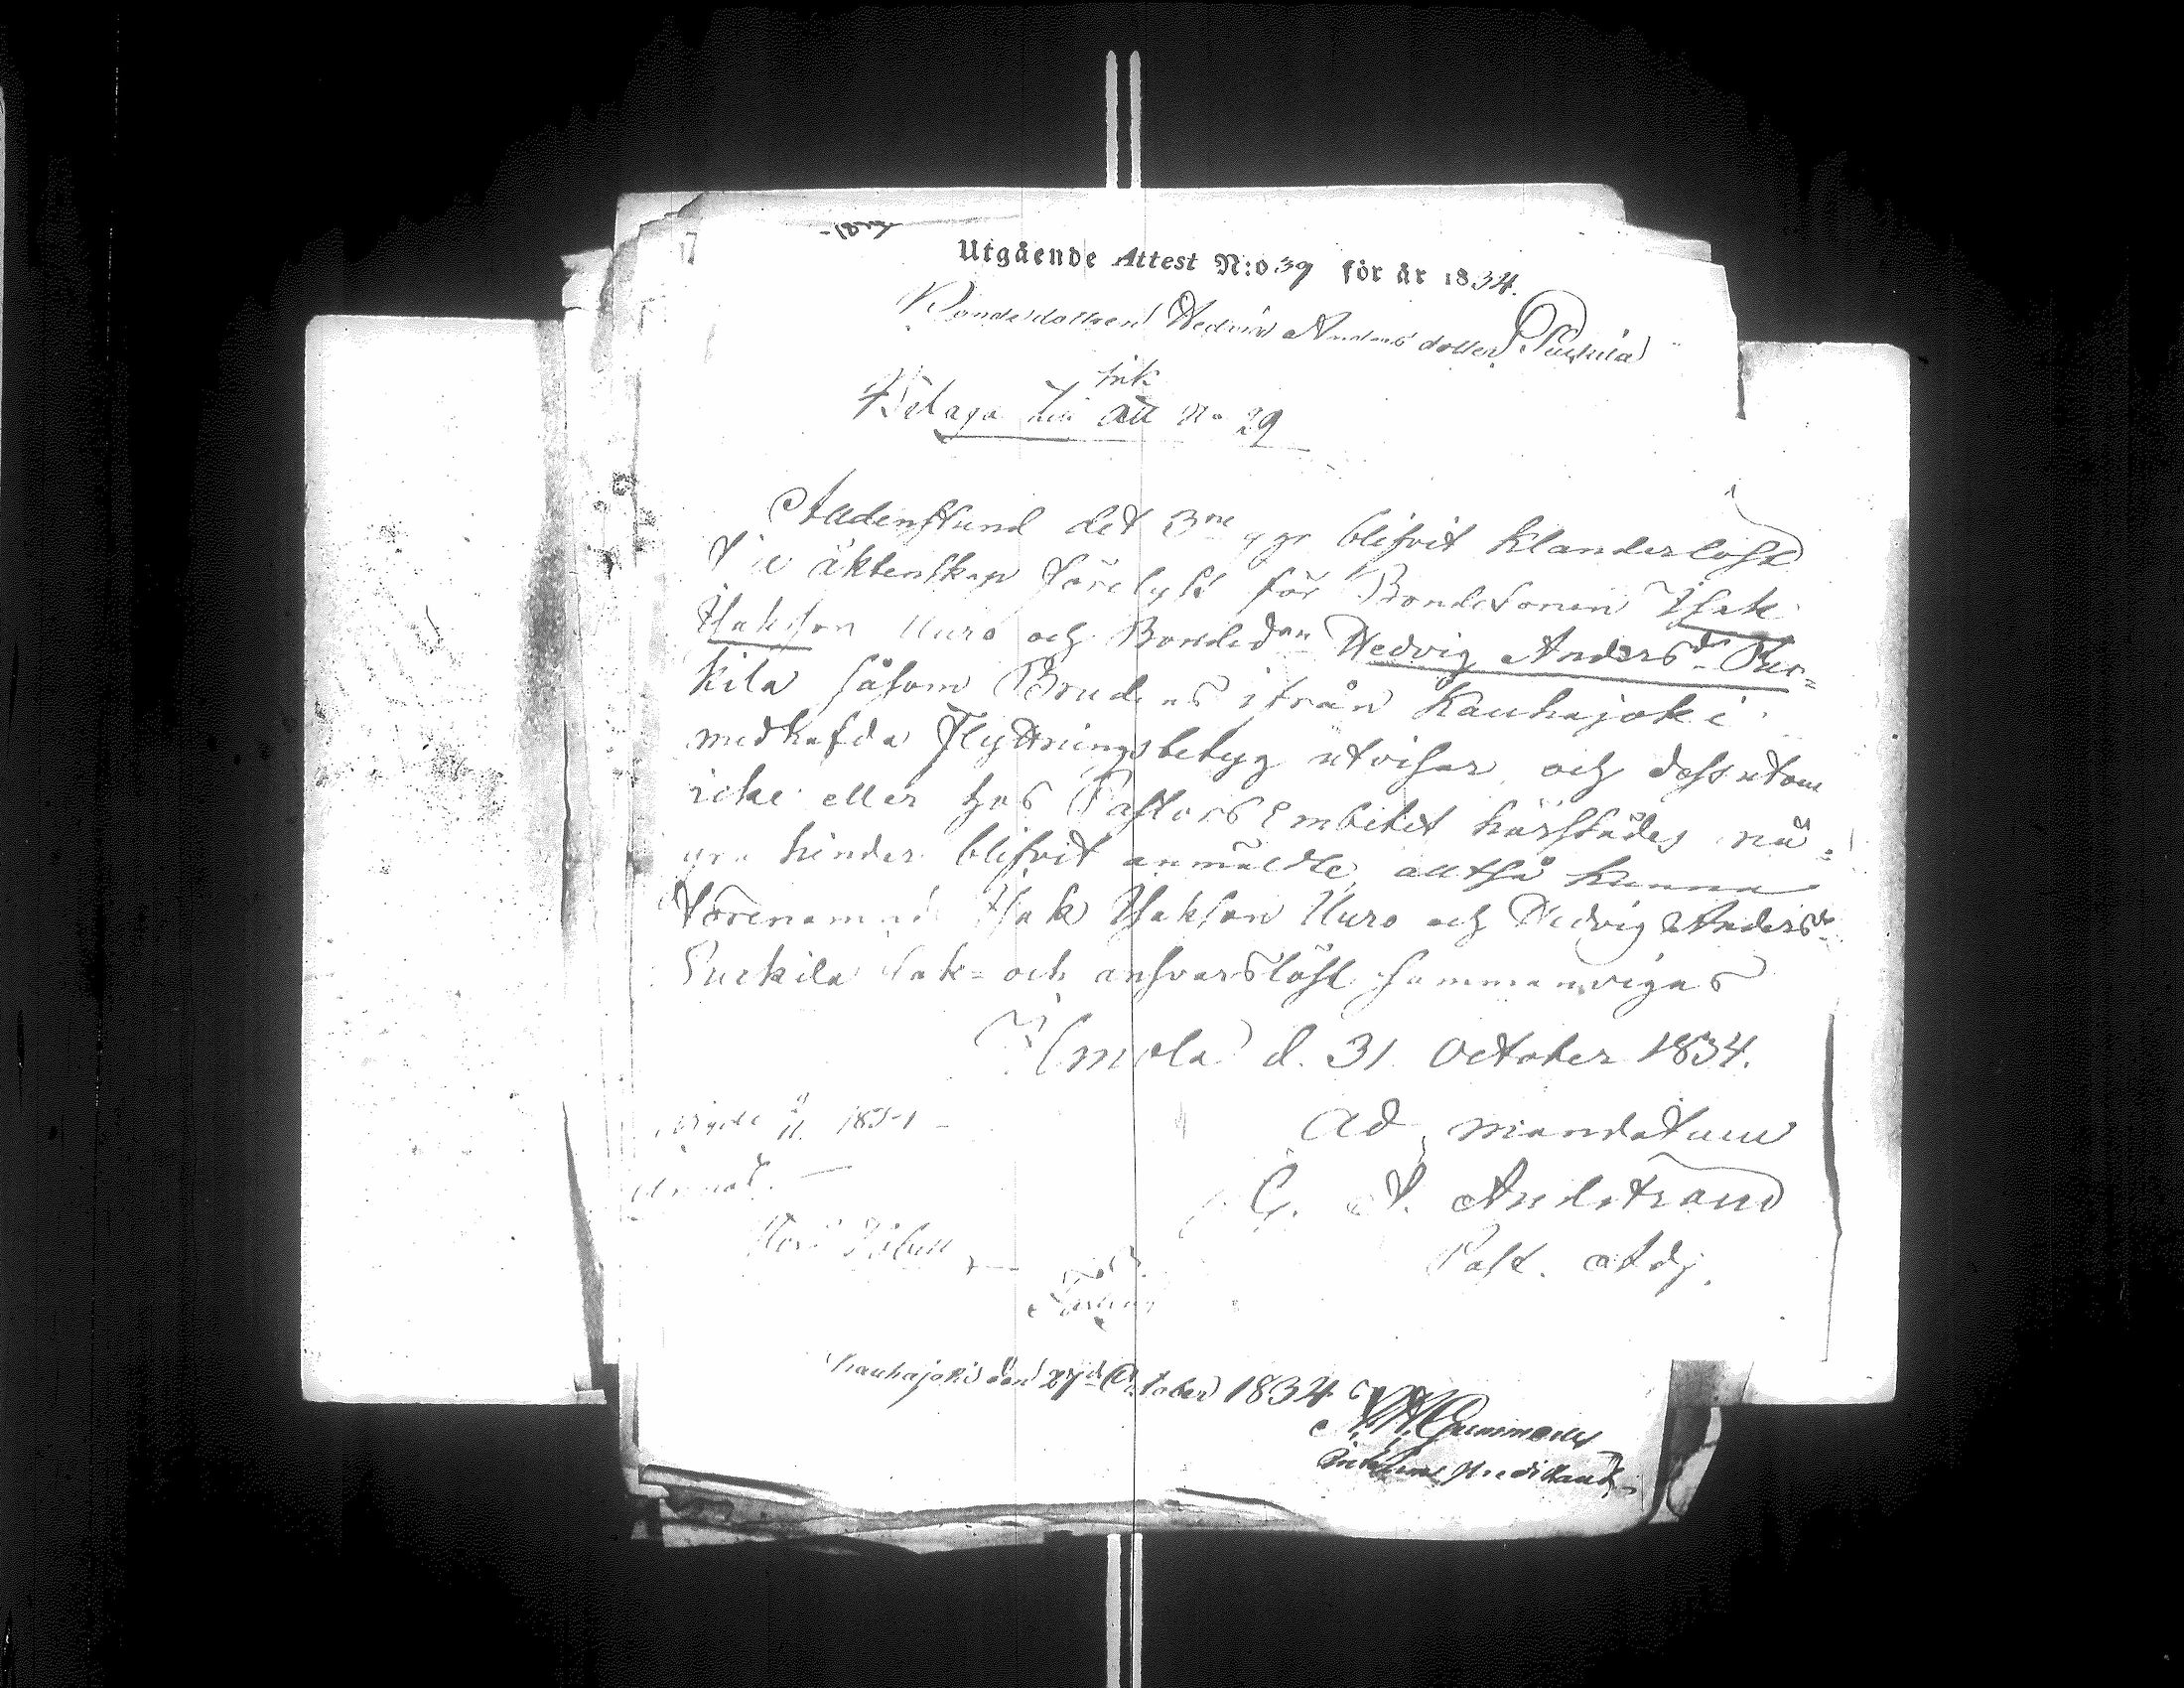 Utgående Attest N:o 39 för år 1834.
Bondedottren Hedvig Anders dotter Purkila
ink
Bilaga till att No 29
Alldenstund det 3ne ggr blifvit klanderlöst
til äktenskap förelyst för Bondesonen Isak
Isakson Uuro och Bonded:an Hedvig Andersdr Pur=
kila såsom Brudens ifrån Kauhajoki
medhafda Flyttningsbetyg utvisar och dessutom
icke eller hos Pastors Embetet härstädes nå=
gra hinder blifvit anmäldte, alltså kunna
förenamnde Isak Isakson Uuro och Hedvig Andersdr
Purkila sak= och ansvarslöst sammanvigas
Ilmola d. 31 October 1834.
Ad mandatum
vigde 9/11 1834
G. A. Andstrand
Past. Adj.
Kauhajoki den 27d October 1834
Gummerus